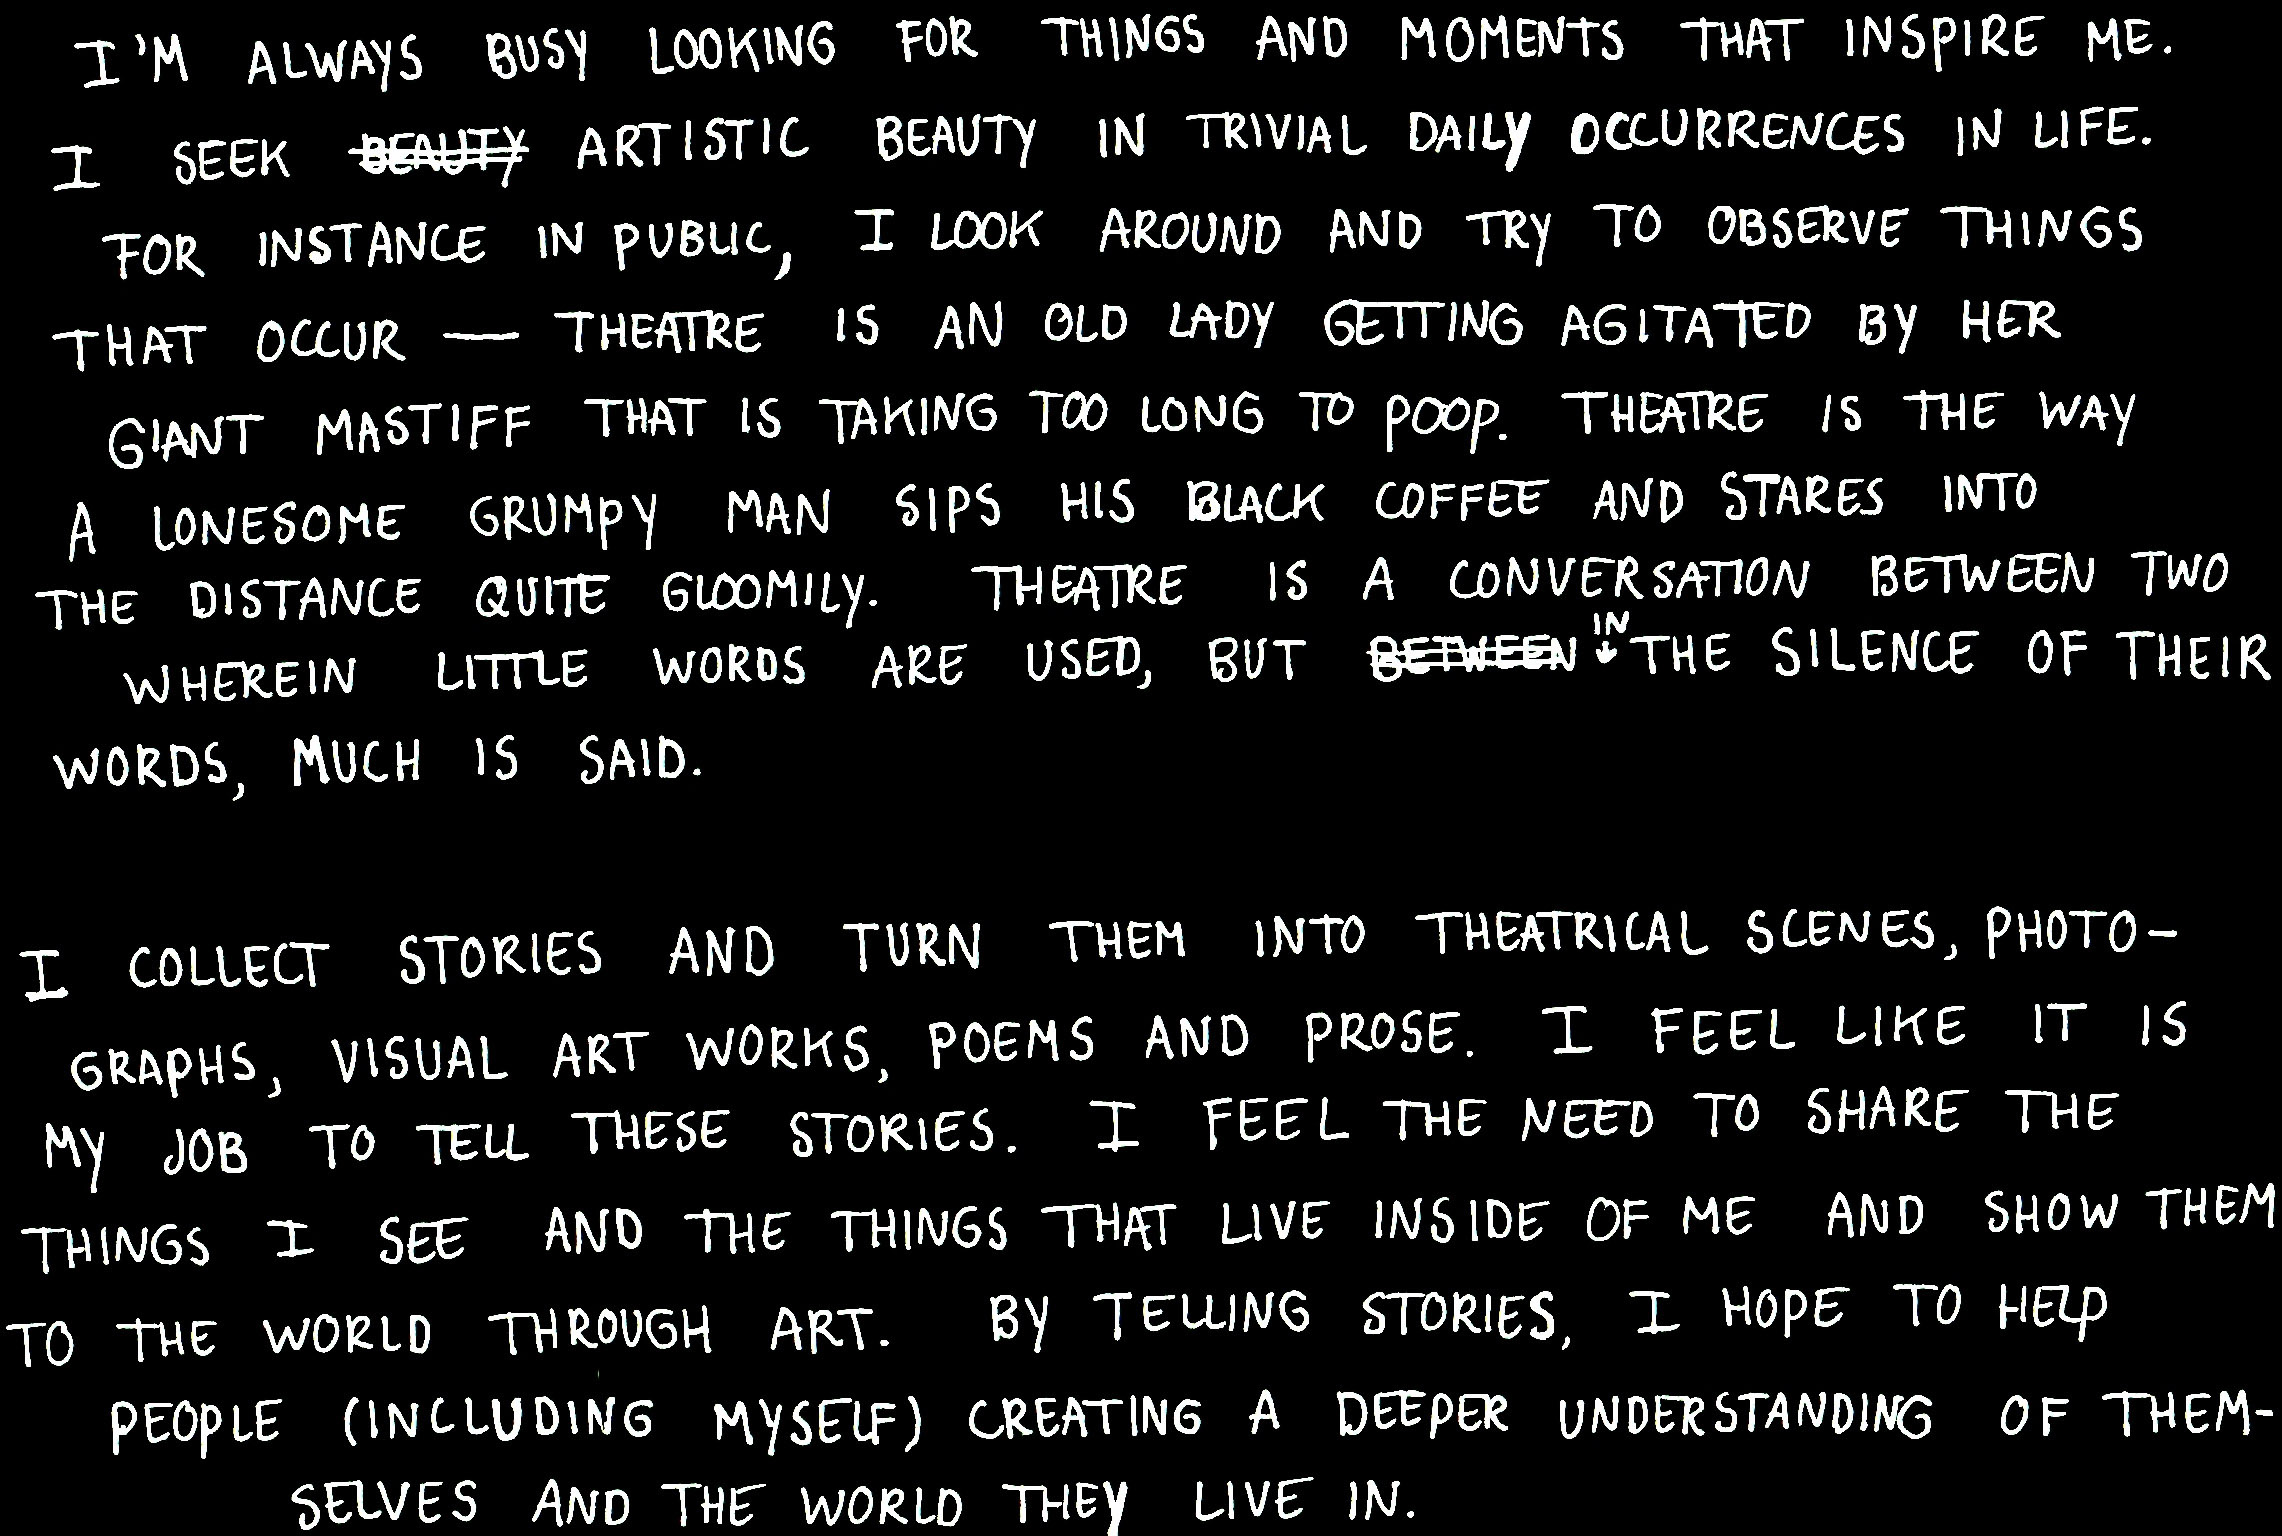 I'M ALWAYS BUSY LOOKING FOR THINGS AND MOMENTS THAT INSPIRE ME.
I SEEK BEAUTY ARTISTIC BEAUTY IN TRIVIAL DAILY OCCURRENCES IN LIFE.
FOR INSTANCE IN PUBLIC, I LOOK AROUND AND TRY TO OBSERVE THINGS
THAT OCCUR — THEATRE IS AN OLD LADY GETTING AGITATED BY HER
GIANT MASTIFF THAT IS TAKING TOO LONG TO POOP. THEATRE IS THE WAY
A LONESOME GRUMPY MAN SIPS HIS BLACK COFFEE AND STARES INTO
THE DISTANCE QUITE GLOOMILY. THEATRE IS A CONVERSATION BETWEEN TWO
WHEREIN LITTLE WORDS ARE USED, BUT BETWEEN IN THE SILENCE OF THEIR
WORDS, MUCH IS SAID.
I COLLECT STORIES AND TURN THEM INTO THEATRICAL SCENES, PHOTO-
GRAPHS, VISUAL ART WORKS, POEMS AND PROSE. I FEEL LIKE IT IS
MY JOB TO TELL THESE STORIES. I FEEL THE NEED TO SHARE THE
THINGS I SEE AND THE THINGS THAT LIVE INSIDE OF ME AND SHOW THEM
TO THE WORLD THROUGH ART. BY TELLING STORIES, I HOPE TO HELP
PEOPLE (INCLUDING MYSELF) CREATING A DEEPER UNDERSTANDING OF THEM-
SELVES AND THE WORLD THEY LIVE IN.